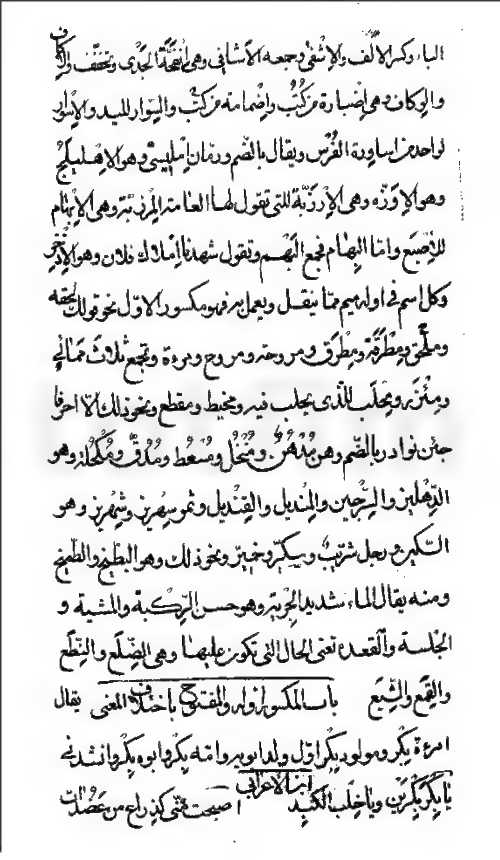 الباء وكسر الألف والإشفى وجمعه الأشافي وهي إنفحة الجدي وتخفف والإكاف
والوكاف وهي إضبارة من كتب وإضمامة من كتب والسوار لليد والإسوار
لواحد من أساورة الفرس ويقال بالضم ورمان إمليسي وهو الإهليلج
وهو الإوزة وهي الإرزبة للتي تقول لها العامة المرزبة وهي الإبهام
للإصبع وأما البهام فجمع البهم وتقول شهدنا إملاك فلان وهو الإذخر
وكل اسم في أوله ميم مما ينقل ويعمل به فهو مكسور الأول نحو قولك ملحفة
وملحف ومطرقة ومطرق ومروحة ومروح ومرءة وتجمع ثلاث مراء
ومئزر ومحلب للذي يحلب فيه ومخيط ومقطع ونحو ذلك إلا أحرفا
جئن نوادر بالضم وهن مدهن ومنخل ومسعط ومدق ومكحلة وهو
الدهليز والسرجين والمنديل والقنديل وتمر سهريز وشهريز وهو
السكين ورجل شريب وسكير وخمير ونحو ذلك وهو البطيخ والطبيخ
ومنه يقال الماء شديد الجرية وهو حسن الركبة والمشية و
الجلسة والقعدة تعني الحال التي تكون عليها وهي الضلع والنطع
والقمع والشبع باب المكسور أوله والمفتوح باختلاف المعنى يقال
امرءة بكر ومولود بكر أول ولد أبويه وأمه بكر وأبوه بكر وأنشدني
ابن الأعرابي
يا بكر بكرين ويا خلب الكبد أصبحت مني كذراع من عضد